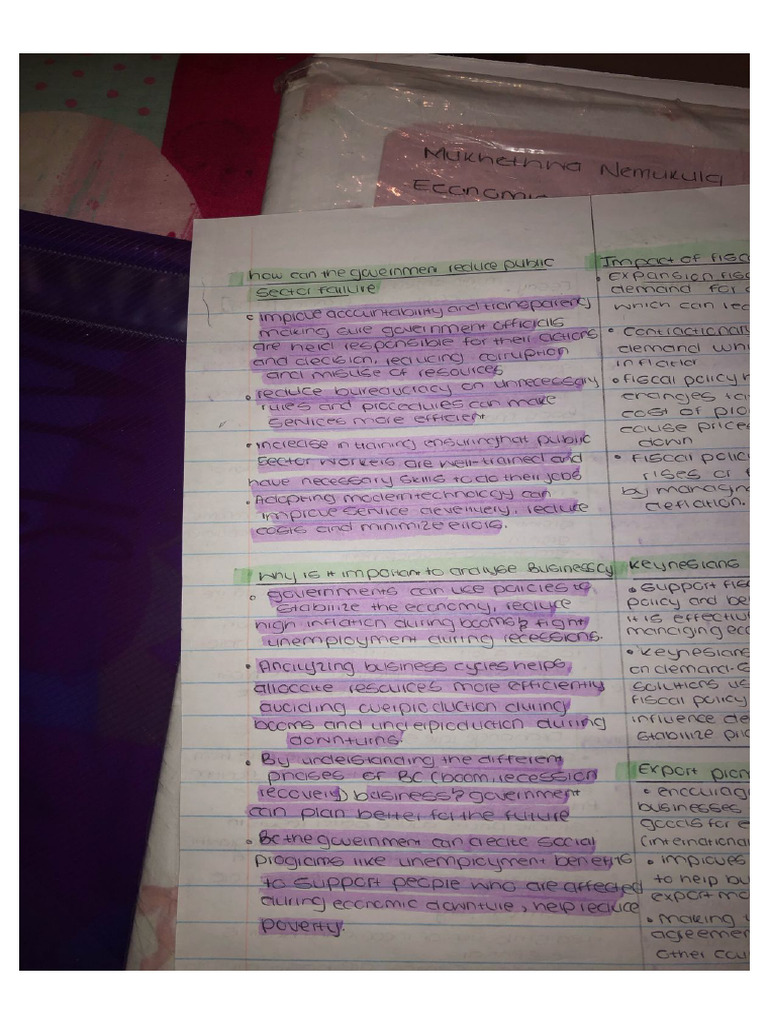 Mukhethwa Nemukula
Economic
how can the government reduce public
sector failure
improve accountability and transparency
making sure government officials
are held responsible for their actions
and decision, reducing corruption
and misuse of resources
reduce bureaucracy on unnecessary
rules and procedures can make
services more efficient
increase in training ensuring that public
sector workers are well-trained and
have necessary skills to do their jobs
Adopting modern technology can
improve service devenvery, reduce
costs and minimize errors.
Why is it important to analyse Business cy
governments can use policies to
stabilize the economy, reduce
high inflation during booms & fight
unemployment during recessions.
Analyzing business cycles helps
allocate resources more efficiently
avoiding overproduction during
booms and underproduction during
downturns.
By understanding the different
phases of BC (boom, recession
recovery) business & government
can plan better for the future
BC the government can create social
programs like unemployment benefits
to support people who are affected
during economic downture, help reduce
poverty.
Impact of fisc
Expansion fisc
demand for
which can
contractionary
demand whi
inflation
fiscal policy
changes
cost of pro
cause prices
down
fiscal polic
rises or f
by managin
deflation.
Keynesians
support fisc
policy and be
it is effectiv
managing eco
Keynesians
on demand-s
solutions us
fiscal policy
influence de
stabilize pri
Export prom
encourag
businesses
goods for e
(international
improves
to help bu
export ma
making
agreemen
other cou